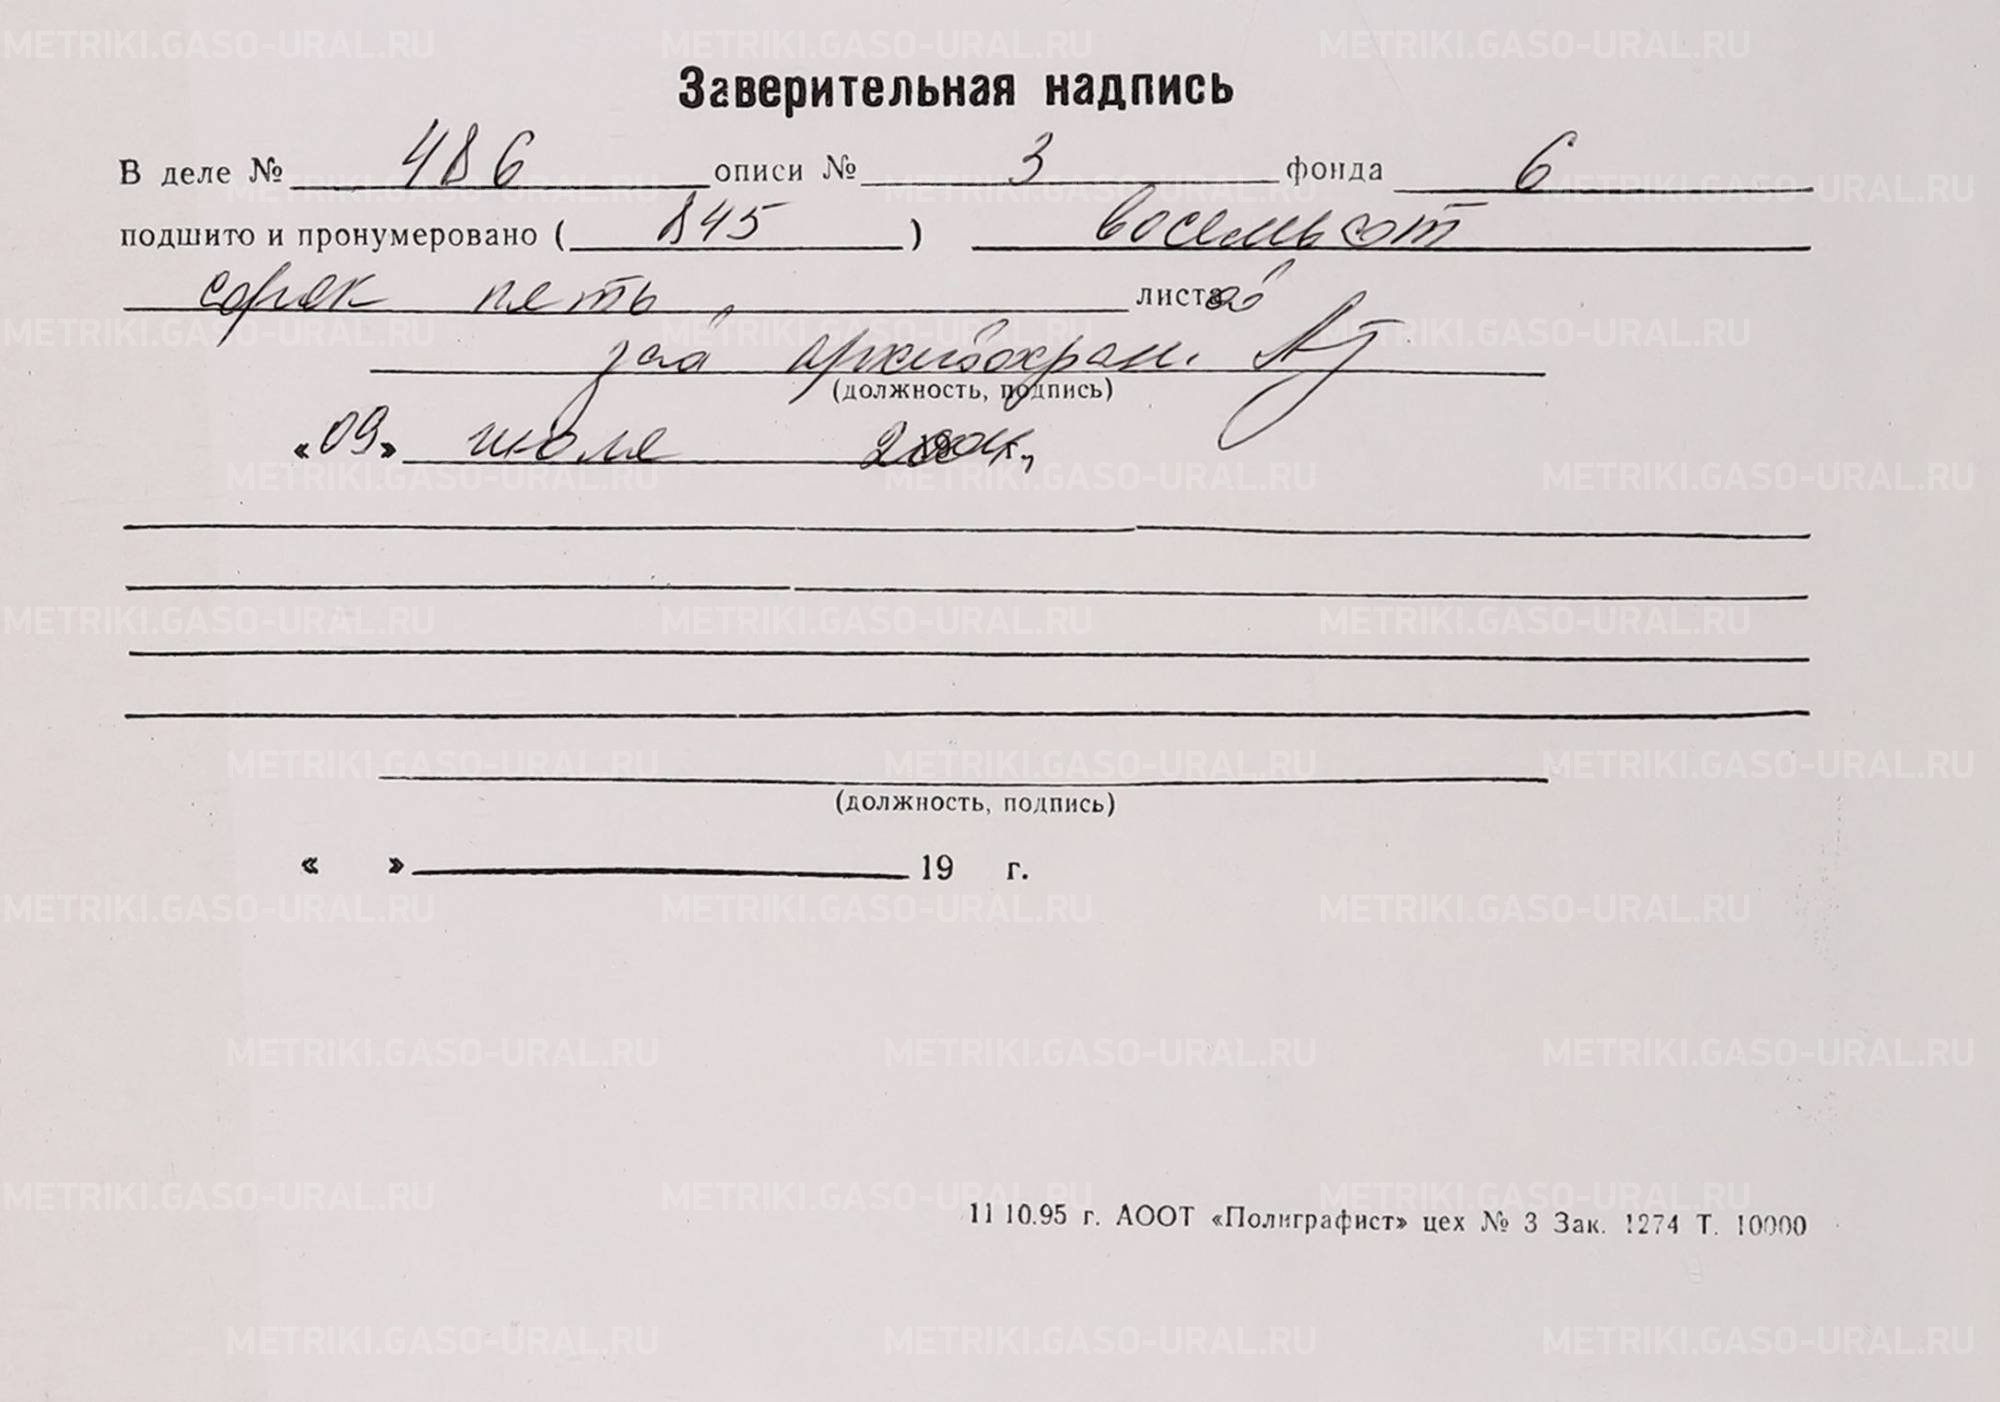 Заверительная надпись
В деле № 486 описи № 3 фонда 6
подшито и пронумеровано ( 845 ) восемьсот
сорок пять листов
зав. архивохран.
(должность, подпись)
«09» июля г.
(должность, подпись)
« » 19 г.
11 10.95 г. АООТ «Полиграфист» цех № 3 Зак. 1274 Т. 10000
METRIKI.GASO-URAL.RU